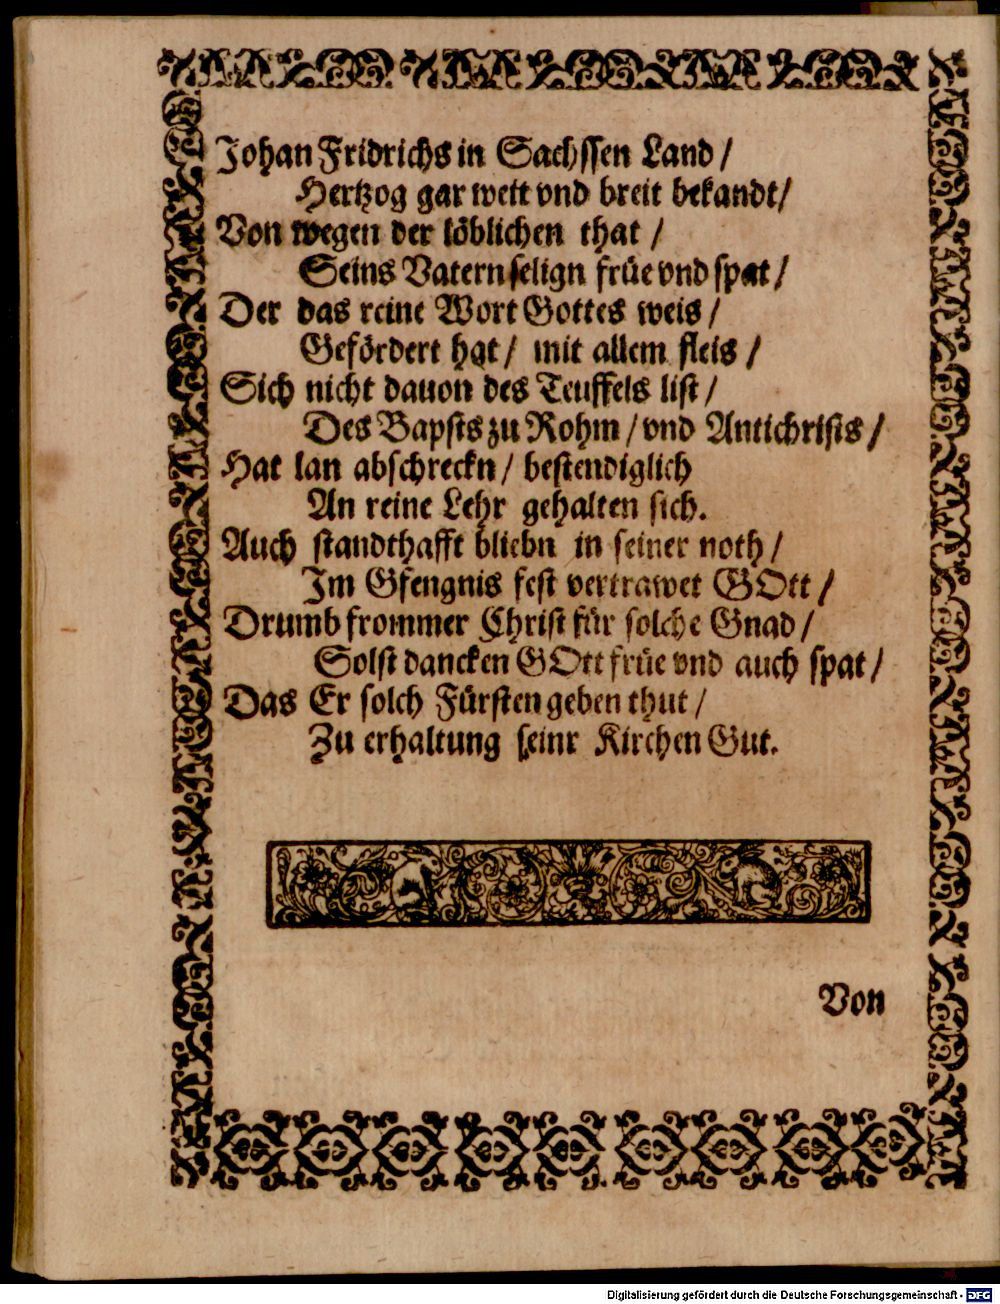 Johan Fridrichs in Sachssen Land /
Hertzog gar weit vnd breit bekandt /
Von wegen der löblichen that /
Seins Vatern selign früe vnd spat /
Der das reine Wort Gottes weis /
Gefördert hat / mit allem fleis /
Sich nicht dauon des Teuffels list /
Des Bapsts zu Rohm / vnd Antichrists /
Hat lan abschreckn / bestendiglich
An reine Lehr gehalten sich.
Auch standthafft bliebn in seiner noth /
Im Gfengnis fest vertrawet GOtt /
Drumb frommer Christ für solche Gnad /
Solst dancken GOtt früe vnd auch spat /
Das Er solch Fürsten geben thut /
Zu erhaltung seinr Kirchen Gut.
Von
Digitalisierung gefördert durch die Deutsche Forschungsgemeinschaft - DFG